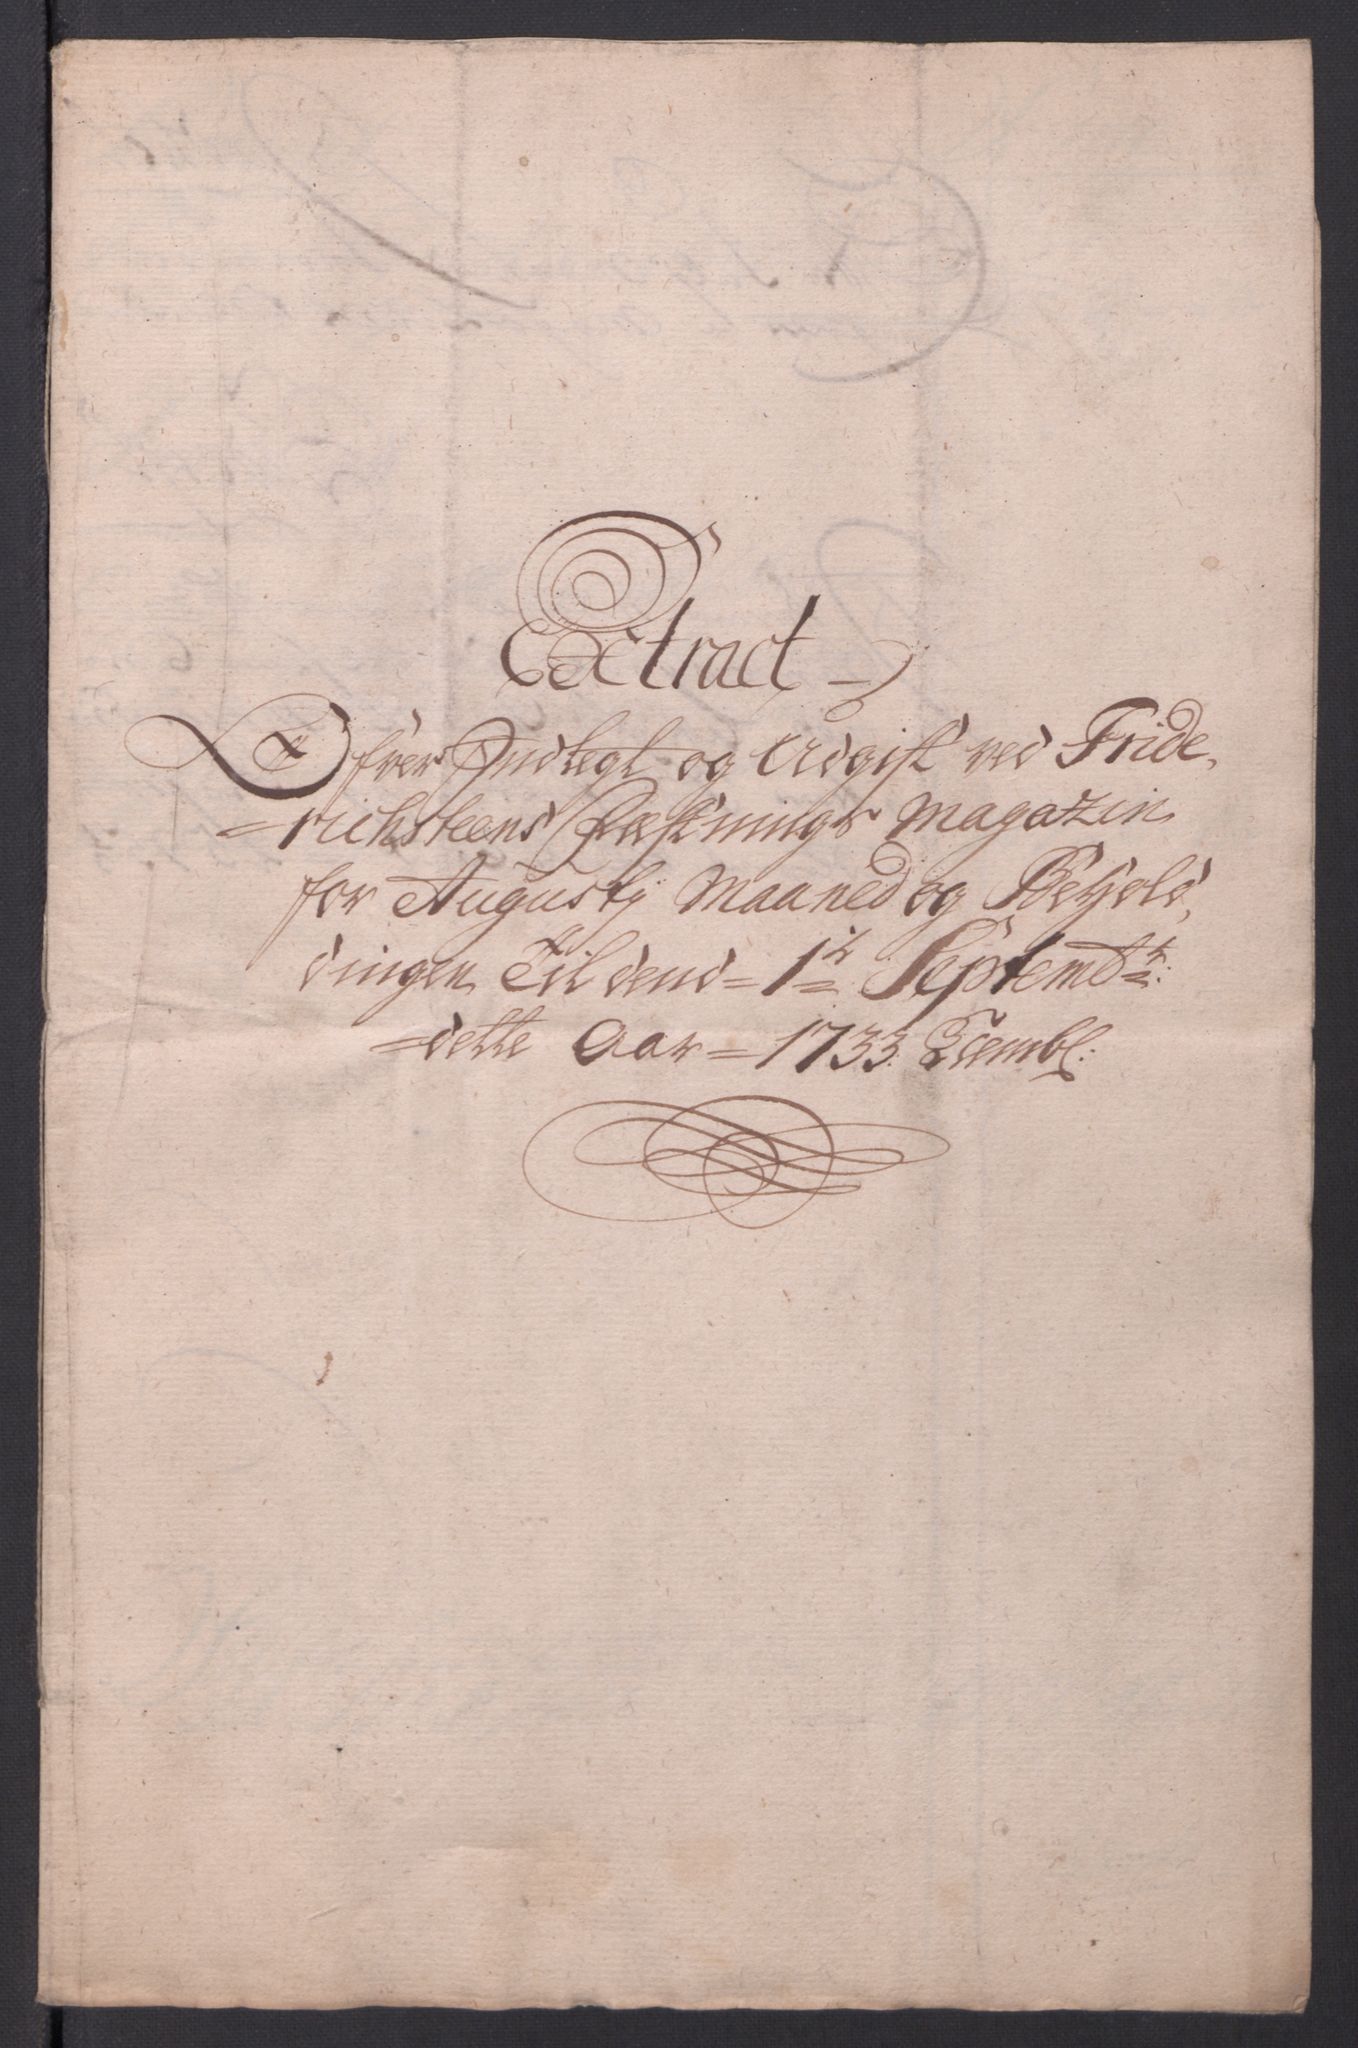 Extract
Ofver Indtegt og Udgift ved Fride,
=richsteens Fæstnings Magazin
for Augustij Maaned og Behold,
dingen Til dend = 1te Septembr:
=dette Aar = 1733.